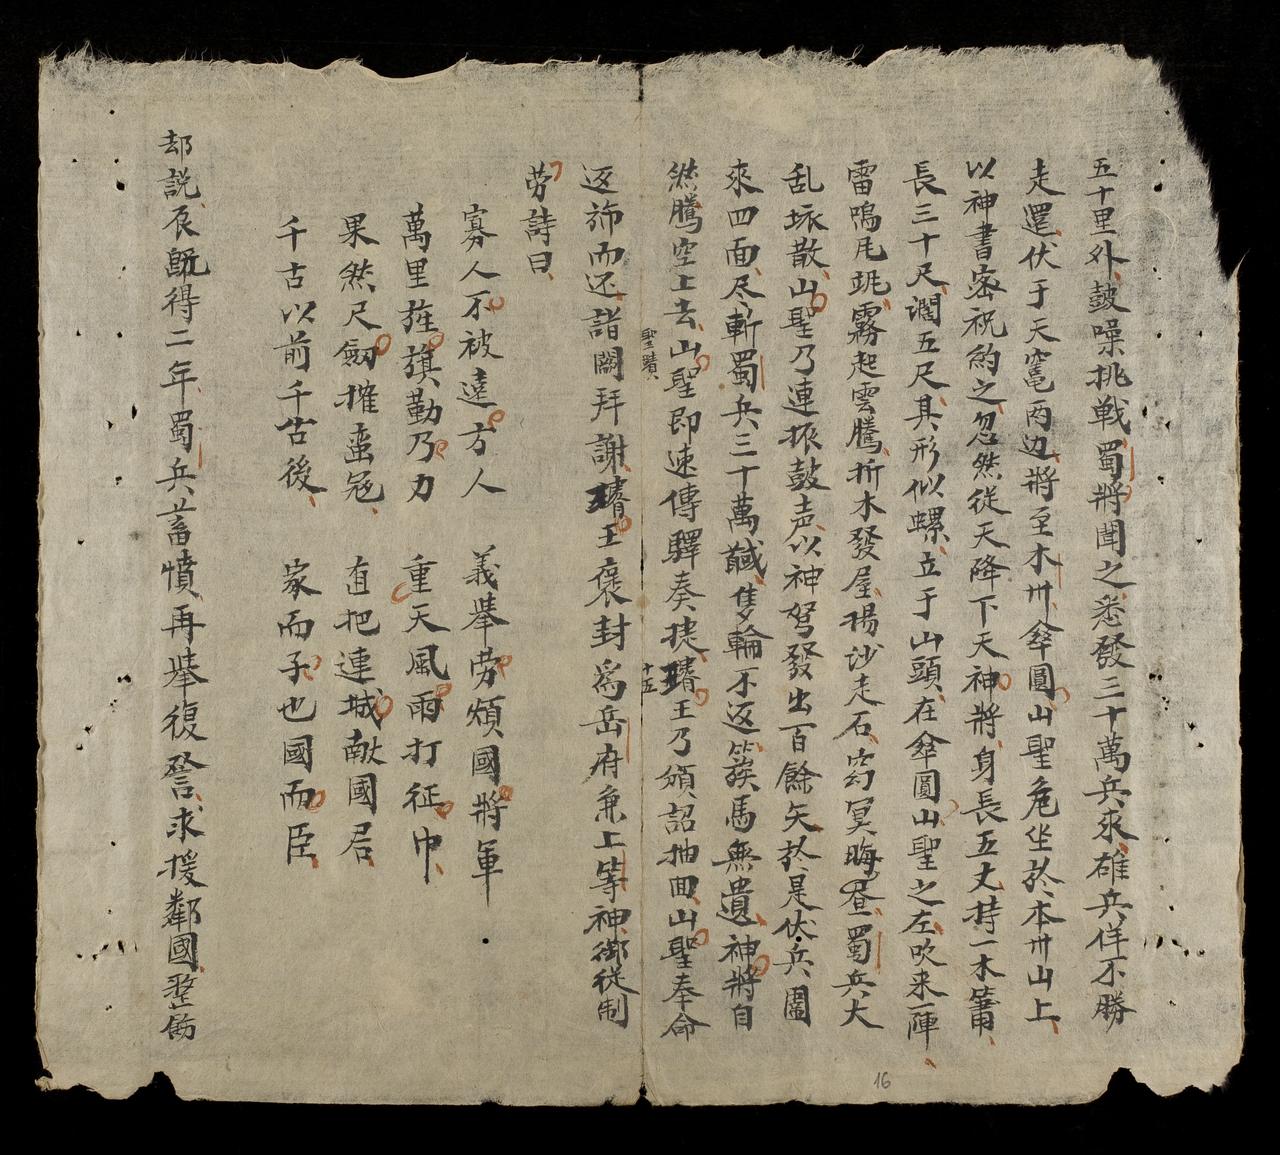 五十里外鼓噪挑戦蜀將聞之悉發三十萬兵來雄兵佯不勝
走還伏于天竃两边將至木州傘圓山聖危坐於本州山上
以神書密祝約之忽然從天降下天神將身長五丈持一木簫
長三十尺濶五尺其形似螺立于山頭在傘圓山聖之左吹来一陣
雷鳴瓦跳霧起雲騰折木發屋揚沙走石窈冥晦昼蜀兵大
乱坼散山聖乃連振鼓声以神弩發出百餘矢於是伏兵圍
來四面尽斬蜀兵三十萬馘隻輪不返簇馬無遺神將自
然騰空上去山聖即速傳驛奏捷璿王乃頒詔抽回山聖奉命
聖蹟
十五
返斾而还諸闕拜謝璿王褒封為岳府兼上等神御從制
劳詩曰
寡人不被遠方人 義举劳煩國將軍
萬里旌旗勤乃力 重天風雨打征巾
果然尺劔摧蛮冦 直把連城献國君
千古以前千古後 家而子也國而臣
却說辰既得二年蜀兵蓄憤再举復誓求援鄰國整飭
16